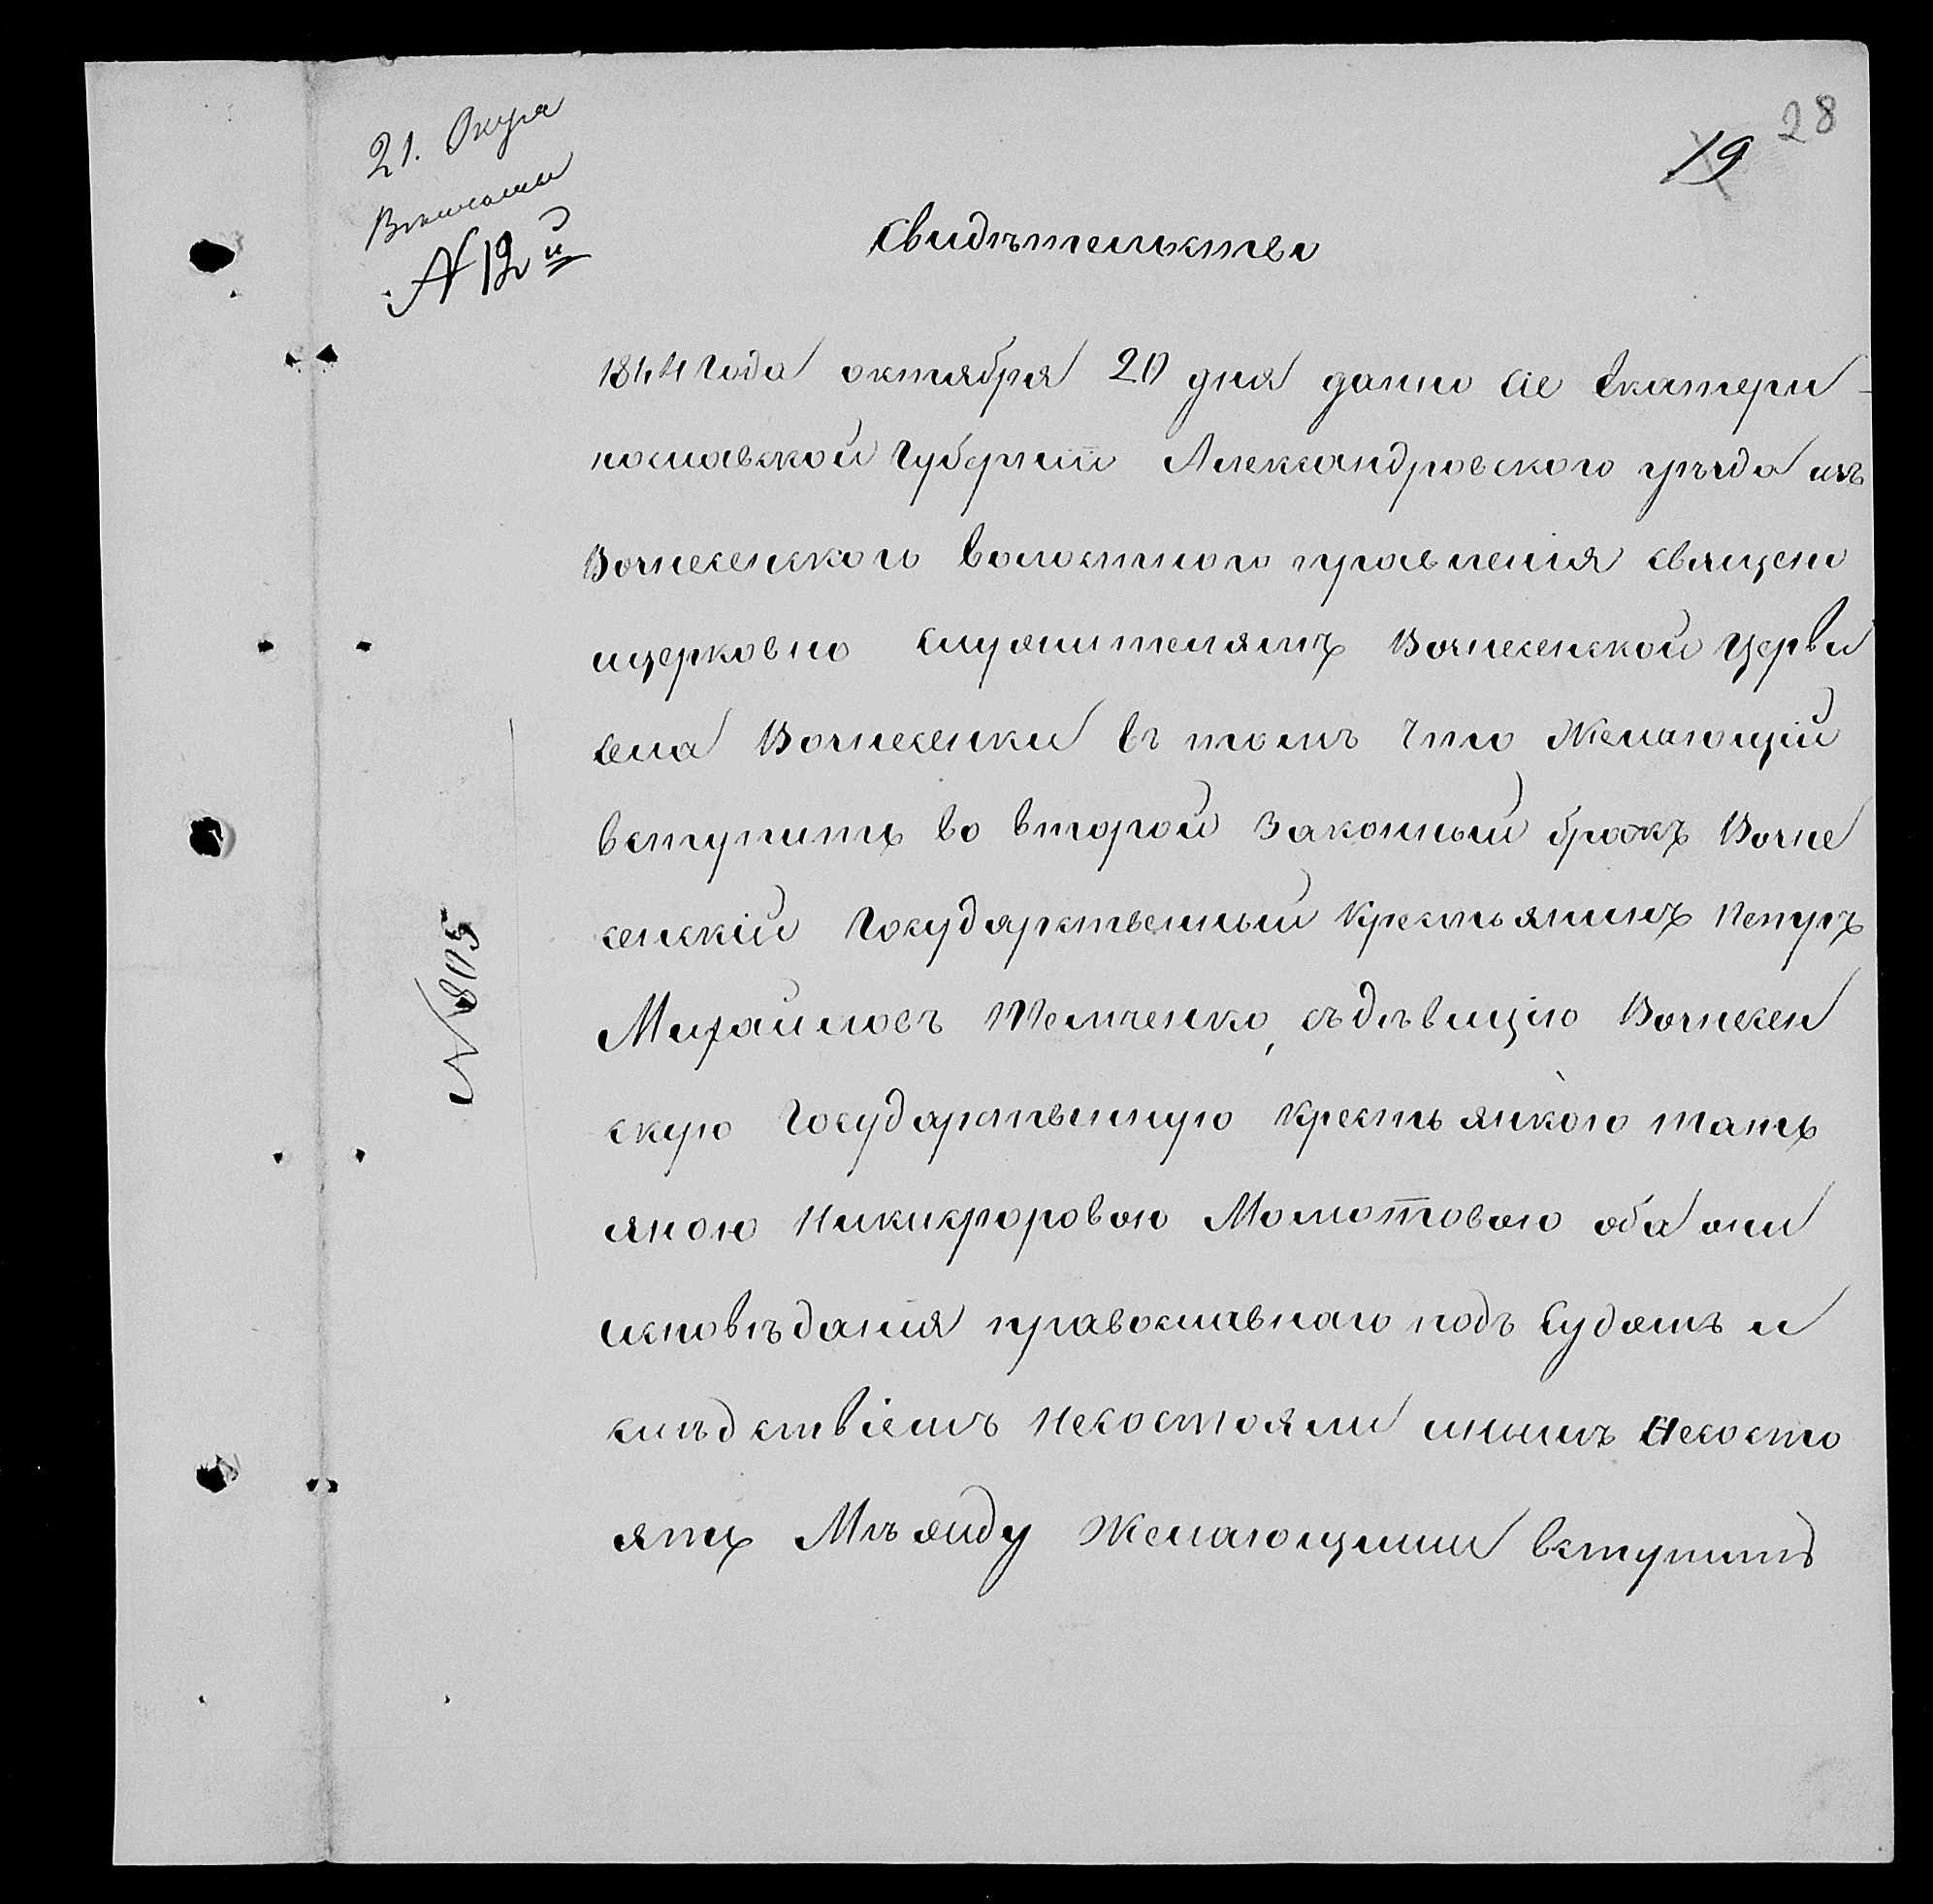 28
19
21. Окуя
№ 12й
Свидѣтельство
1844 года октября 20 дня данно сіе Екатери-
нославской Губерніи Александровского уѣзда изъ
Вознесенского волостного правления священо
ицерковно служителямъ Вознесенской Церви
села Вознесенки въ томъ что Желающій
вступить во второй Законный бракъ Возне
сенскій Государственный Крестьянинъ Петръ
Михайловъ Темченко, съдѣвицію Вознесен
скую Государственную крестьянкою тать
яною Никифоровою Момотовою оба они
исповѣдания православнаго подъ Судомъ и
слѣдствіемъ Несостояли инынъ Несосто
ятъ Мѣжиду Желающими вступить
№ 805